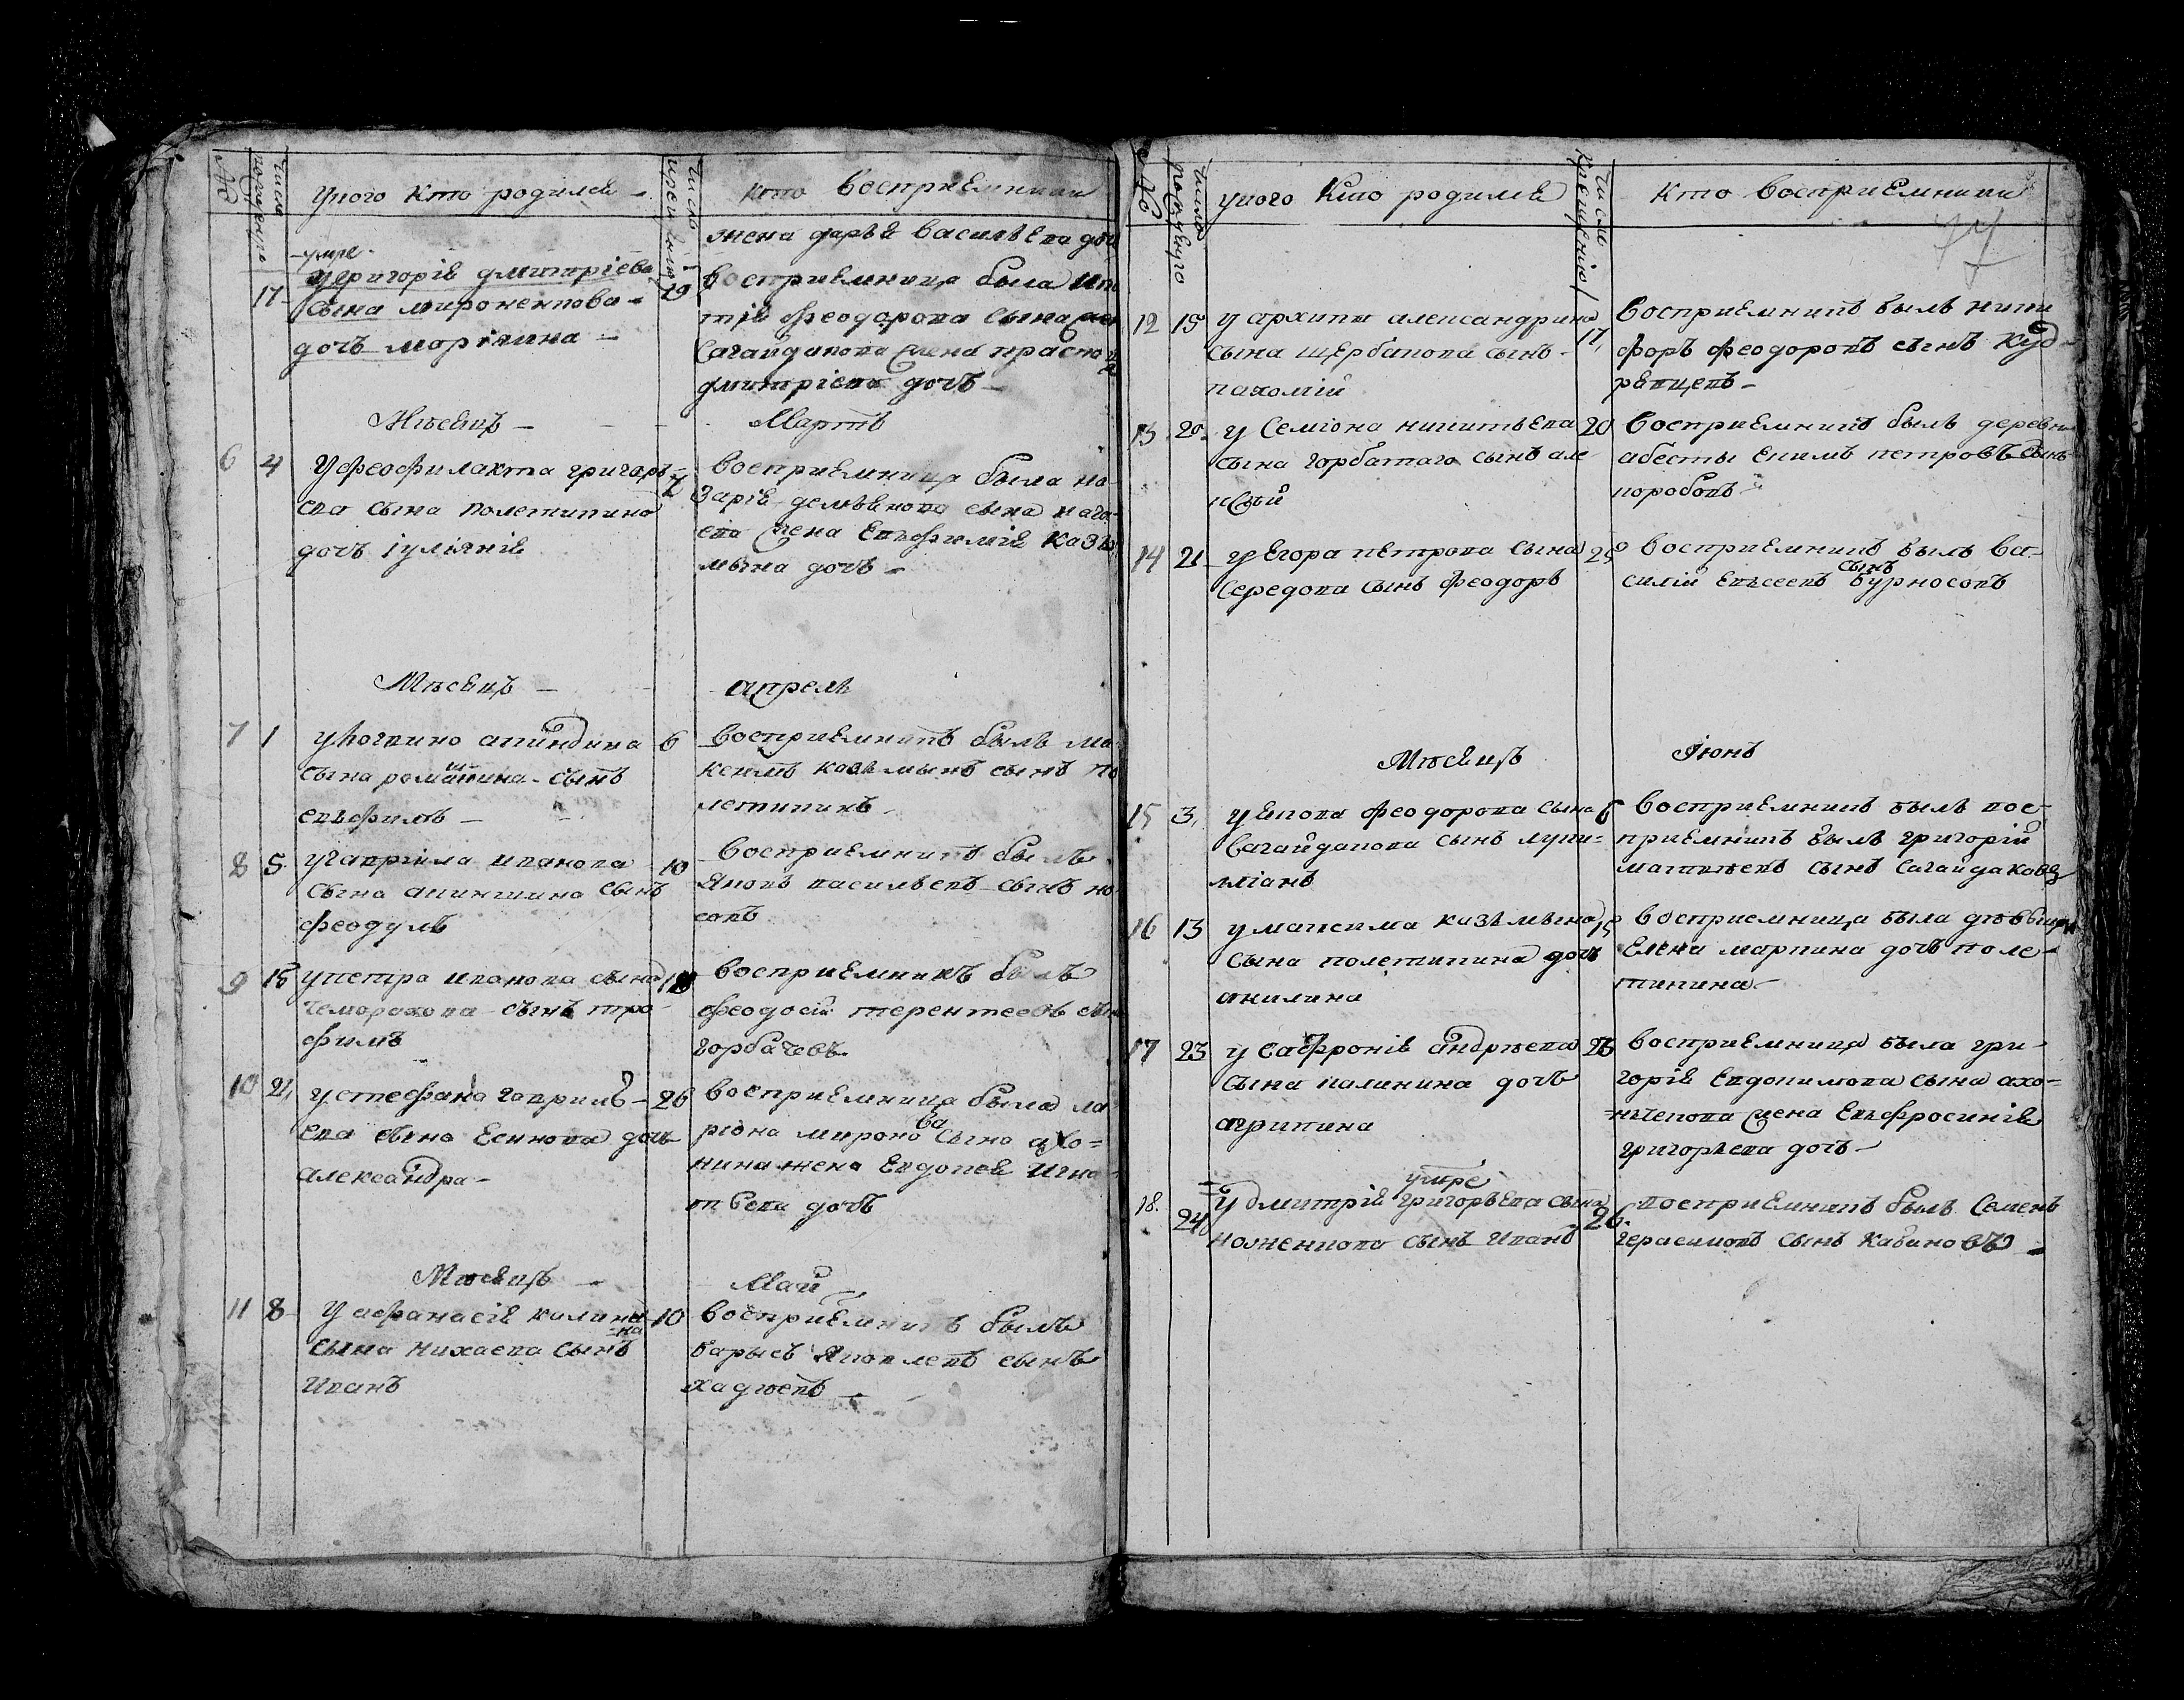 №
число рожденнаго
У кого кто родился
число крещенiю
кто восприемники
жена дарья васильева дочь
умре
17
У григорiя дмитрiева
сына
дочь
19
восприемница была
феодорова сына
Сагайдакова жена
дмитрiева дочь
Мѣсяцъ
Мартъ
6 4
У феофилакта григорь
ева сына полетикина
дочь iулiянiя
7
восприемница была на
зарiя сына
жена евфимiя казь
мина дочь
Мѣсяцъ
апрель
7 1
сына сынъ
евфимъ
6
восприемникъ былъ ма
ксимъ казьминъ сынъ по
летикинъ
8 5
у гаврiила иванова
сына аникина сынъ
феодулъ
10
восприемникъ былъ
яковъ васильевъ сынъ но
совъ
9 15
у петра иванова сына
сынъ тро
фимъ
восприемникъ былъ
феодосiй терентеевъ сынъ
горбачевъ
10 21
у стефана гаврилъ
ева сына Есикова дочь
александра
26
восприемница была ла
рiона миронова сына ахо
нина жена Евдокея игна
тьева дочь
Мѣсяцъ
Май
11 8
У афанасiя калинина
сына михаева сынъ
Иванъ
10
восприемникъ былъ
барысъ яковлевъ сынъ
хадѣевъ
№
число рожденнаго
у кого кто родился
число крещенiю
кто восприемники
77
12 15
у архипа александрина
сына щербакова сынъ
пахомiй
17
восприемникъ былъ ники
форъ феодоровъ сынъ куд
рявцевъ
13 20
у Семiона никитьева
сына горбатаго сынъ але
ксѣй
20
восприемникъ былъ деревни
абесты екимъ петровъ сынъ
коробовъ
14 21
у Егора петрова сына
Середова сынъ феодоръ
25
восприемникъ былъ ва
силiй евсеевъ сынъ бурносовъ
Мѣсяцъ
Iюнь
15 3
у якова феодорова сына
Сагайдакова сынъ луки
лiанъ
6
восприемникъ былъ вос
приемникъ былъ григорiй
матвѣевъ сынъ сагайдаковъ
16 13
у максима казьмина
сына полетикина дочь
акилина
15
восприемница была дѣвица
Елена маркина дочь поле
тикина
17 23
у Сафронiя андрѣева
сына калинина дочь
агрипина
26
восприемница была гри
горiя евдокимова сына ахо
жена евфросинiя
григорьева дочь
умре
18 24
у дмитрiя григорьева сына
ноженкова сынъ иванъ
26
восприемникъ былъ Семенъ
герасимовъ сынъ кабановъ